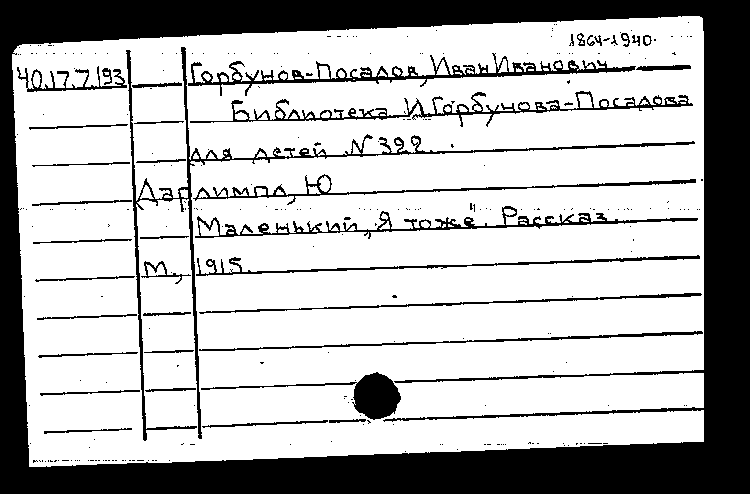 1864-1940.
40.17.7.193 Горбунов-Посадов, Иван Иванович
Библиотека И.Горбунова-Посадова
для детей N 322.
Дарлимпл, Ю
Маленький „Я тоже". Рассказ.
М., 1915.